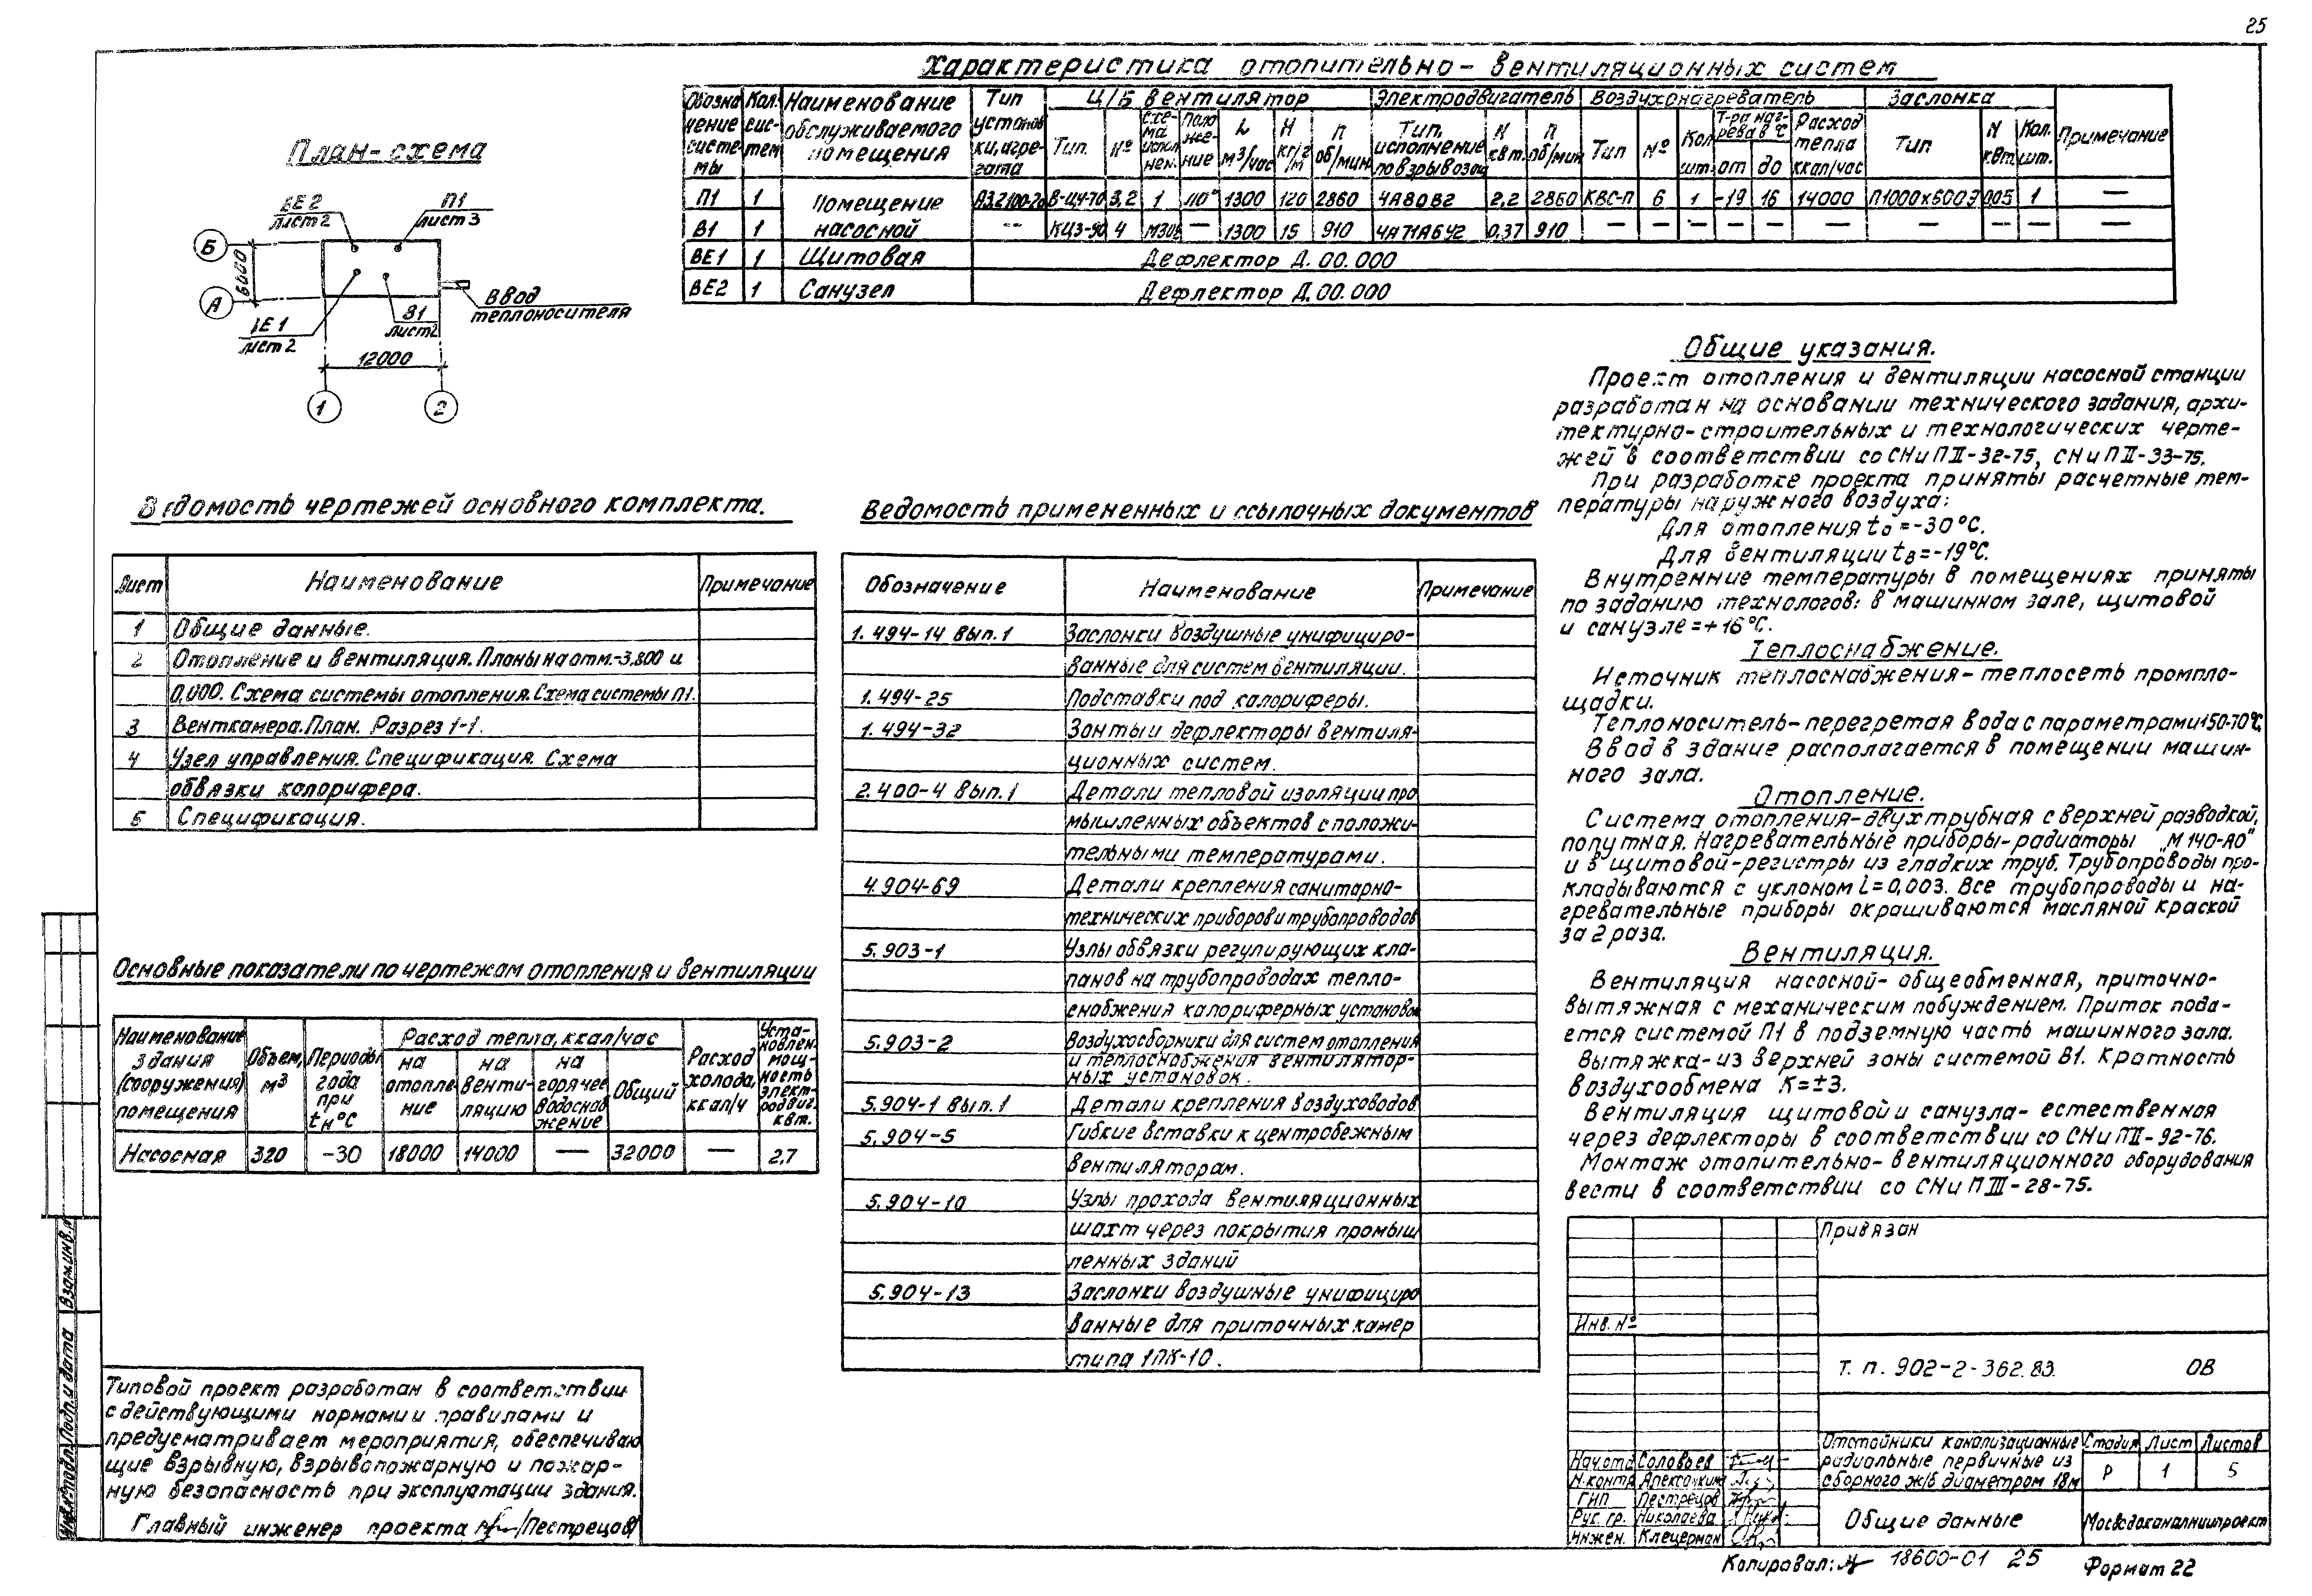 25
Характеристика отопительно-вентиляционных систем
Обозначение системы | Кол. систем | Наименование обслуживаемого помещения | Тип установки, агрегата | Ц/Б вентилятор | Электродвигатель | Воздухонагреватель | Заслонка | Примечание
Тип. | № | Схема исполнен. | Положение | L м³/час | Н кг/м² | n об/мин | Тип, исполнение по взрывозащ | N квт. | n об/мин | Тип | № | Кол. шт. | Т-ра нагрева в °С от | до | Расход тепла ккал/час | Тип | N квт. | Кол. шт.
П1 | 1 | Помещение насосной | В-Ц4-70 | 3,2 | 1 | 1300 | 120 | 2860 | 4А80В2 | 2,2 | 2860 | КВС-П | 6 | 1 | -19 | 16 | 14000 | 1 | —
В1 | 1 | -- | КЦ3-90 | 4 | — | 1300 | 15 | 910 | 4А71А6У2 | 0,37 | 910 | — | — | — | — | — | — | — | — | — | —
ВЕ1 | 1 | Щитовая | Дефлектор Д.00.000
ВЕ2 | 1 | Санузел | Дефлектор Д.00.000
План-схема
ВЕ2
лист 2
П1
лист 3
Б
А
6000
ВЕ1
лист 2
В1
лист 2
Ввод
теплоносителя
12000
1
2
Ведомость чертежей основного комплекта.
Лист | Наименование | Примечание
1 | Общие данные.
2 | Отопление и вентиляция. Планы на отм.-3,800 и
0,000. Схема системы отопления. Схема системы П1.
3 | Венткамера. План. Разрез 1-1.
4 | Узел управления. Спецификация. Схема
обвязки калорифера.
5 | Спецификация.
Основные показатели по чертежам отопления и вентиляции
Наименование здания (сооружения) помещения | Объем, м³ | Периоды года при tн°С | Расход тепла, ккал/час | Расход холода, ккал/ч | Установлен. мощность электродвиг. квт.
на отопление | на вентиляцию | на горячее водоснабжение | Общий
Насосная | 320 | -30 | 18000 | 14000 | — | 32000 | — | 2,7
Типовой проект разработан в соответствии
с действующими нормами и правилами и
предусматривает мероприятия, обеспечиваю
щие взрывную, взрывопожарную и пожар-
ную безопасность при эксплуатации здания.
Главный инженер проекта /Пестрецов/
Ведомость примененных и ссылочных документов
Обозначение | Наименование | Примечание
1.494-14 Вып.1 | Заслонки воздушные унифициро-
ванные для систем вентиляции.
1.494-25 | Подставки под калориферы.
1.494-32 | Зонты и дефлекторы вентиля-
ционных систем.
2.400-4 Вып.1 | Детали тепловой изоляции про
мышленных объектов с положи-
тельными температурами.
4.904-69 | Детали крепления санитарно-
технических приборов и трубопроводов
5.903-1 | Узлы обвязки регулирующих кла-
панов на трубопроводах тепло-
снабжения калориферных установок
5.903-2 | Воздухосборники для систем отопления
и теплоснабжения вентилятор-
ных установок.
5.904-1 Вып.1 | Детали крепления воздуховодов
5.904-5 | Гибкие вставки к центробежным
вентиляторам.
5.904-10 | Узлы прохода вентиляционных
шахт через покрытия промыш
ленных зданий
5.904-13 | Заслонки воздушные унифициро
ванные для приточных камер
типа 1ПК-10.
Общие указания.
Проект отопления и вентиляции насосной станции
разработан на основании технического задания, архи-
тектурно-строительных и технологических черте-
жей в соответствии со СНиП II-32-75, СНиП II-33-75.
При разработке проекта приняты расчетные тем-
пературы наружного воздуха:
Для отопления tо=-30°С.
Для вентиляции tв=-19°С.
Внутренние температуры в помещениях приняты
по заданию технологов: в машинном зале, щитовой
и санузле=+16°С.
Теплоснабжение.
Источник теплоснабжения-теплосеть промпло-
щадки.
Теплоноситель-перегретая вода с параметрами 150-70°С.
Ввод в здание располагается в помещении машин-
ного зала.
Отопление.
Система отопления-двухтрубная с верхней разводкой,
попутная. Нагревательные приборы-радиаторы „М140-АО"
и в щитовой-регистры из гладких труб. Трубопроводы про-
кладываются с уклоном i=0,003. Все трубопроводы и на-
гревательные приборы окрашиваются масляной краской
за 2 раза.
Вентиляция.
Вентиляция насосной-общеобменная, приточно-
вытяжная с механическим побуждением. Приток пода-
ется системой П1 в подземную часть машинного зала.
Вытяжка-из верхней зоны системой В1. Кратность
воздухообмена К=±3.
Вентиляция щитовой и санузла-естественная
через дефлекторы в соответствии со СНиП II-92-76.
Монтаж отопительно-вентиляционного оборудования
вести в соответствии со СНиП III-28-75.
Привязан
Инв. №
Т. п. 902-2-362.83. ОВ
Нач.отд Соловьев
Н.контр
ГИП Пестрецов
Рук. гр. Николаева
Инжен. Клецерман
Отстойники канализационные
радиальные первичные из
сборного ж/б диаметром 18м
Стадия | Лист | Листов
Р | 1 | 5
Общие данные
Мосводоканалниипроект
Инв.№подл. Подп. и дата Взам.инв.№
Копировал: 18600-01 25 Формат 22